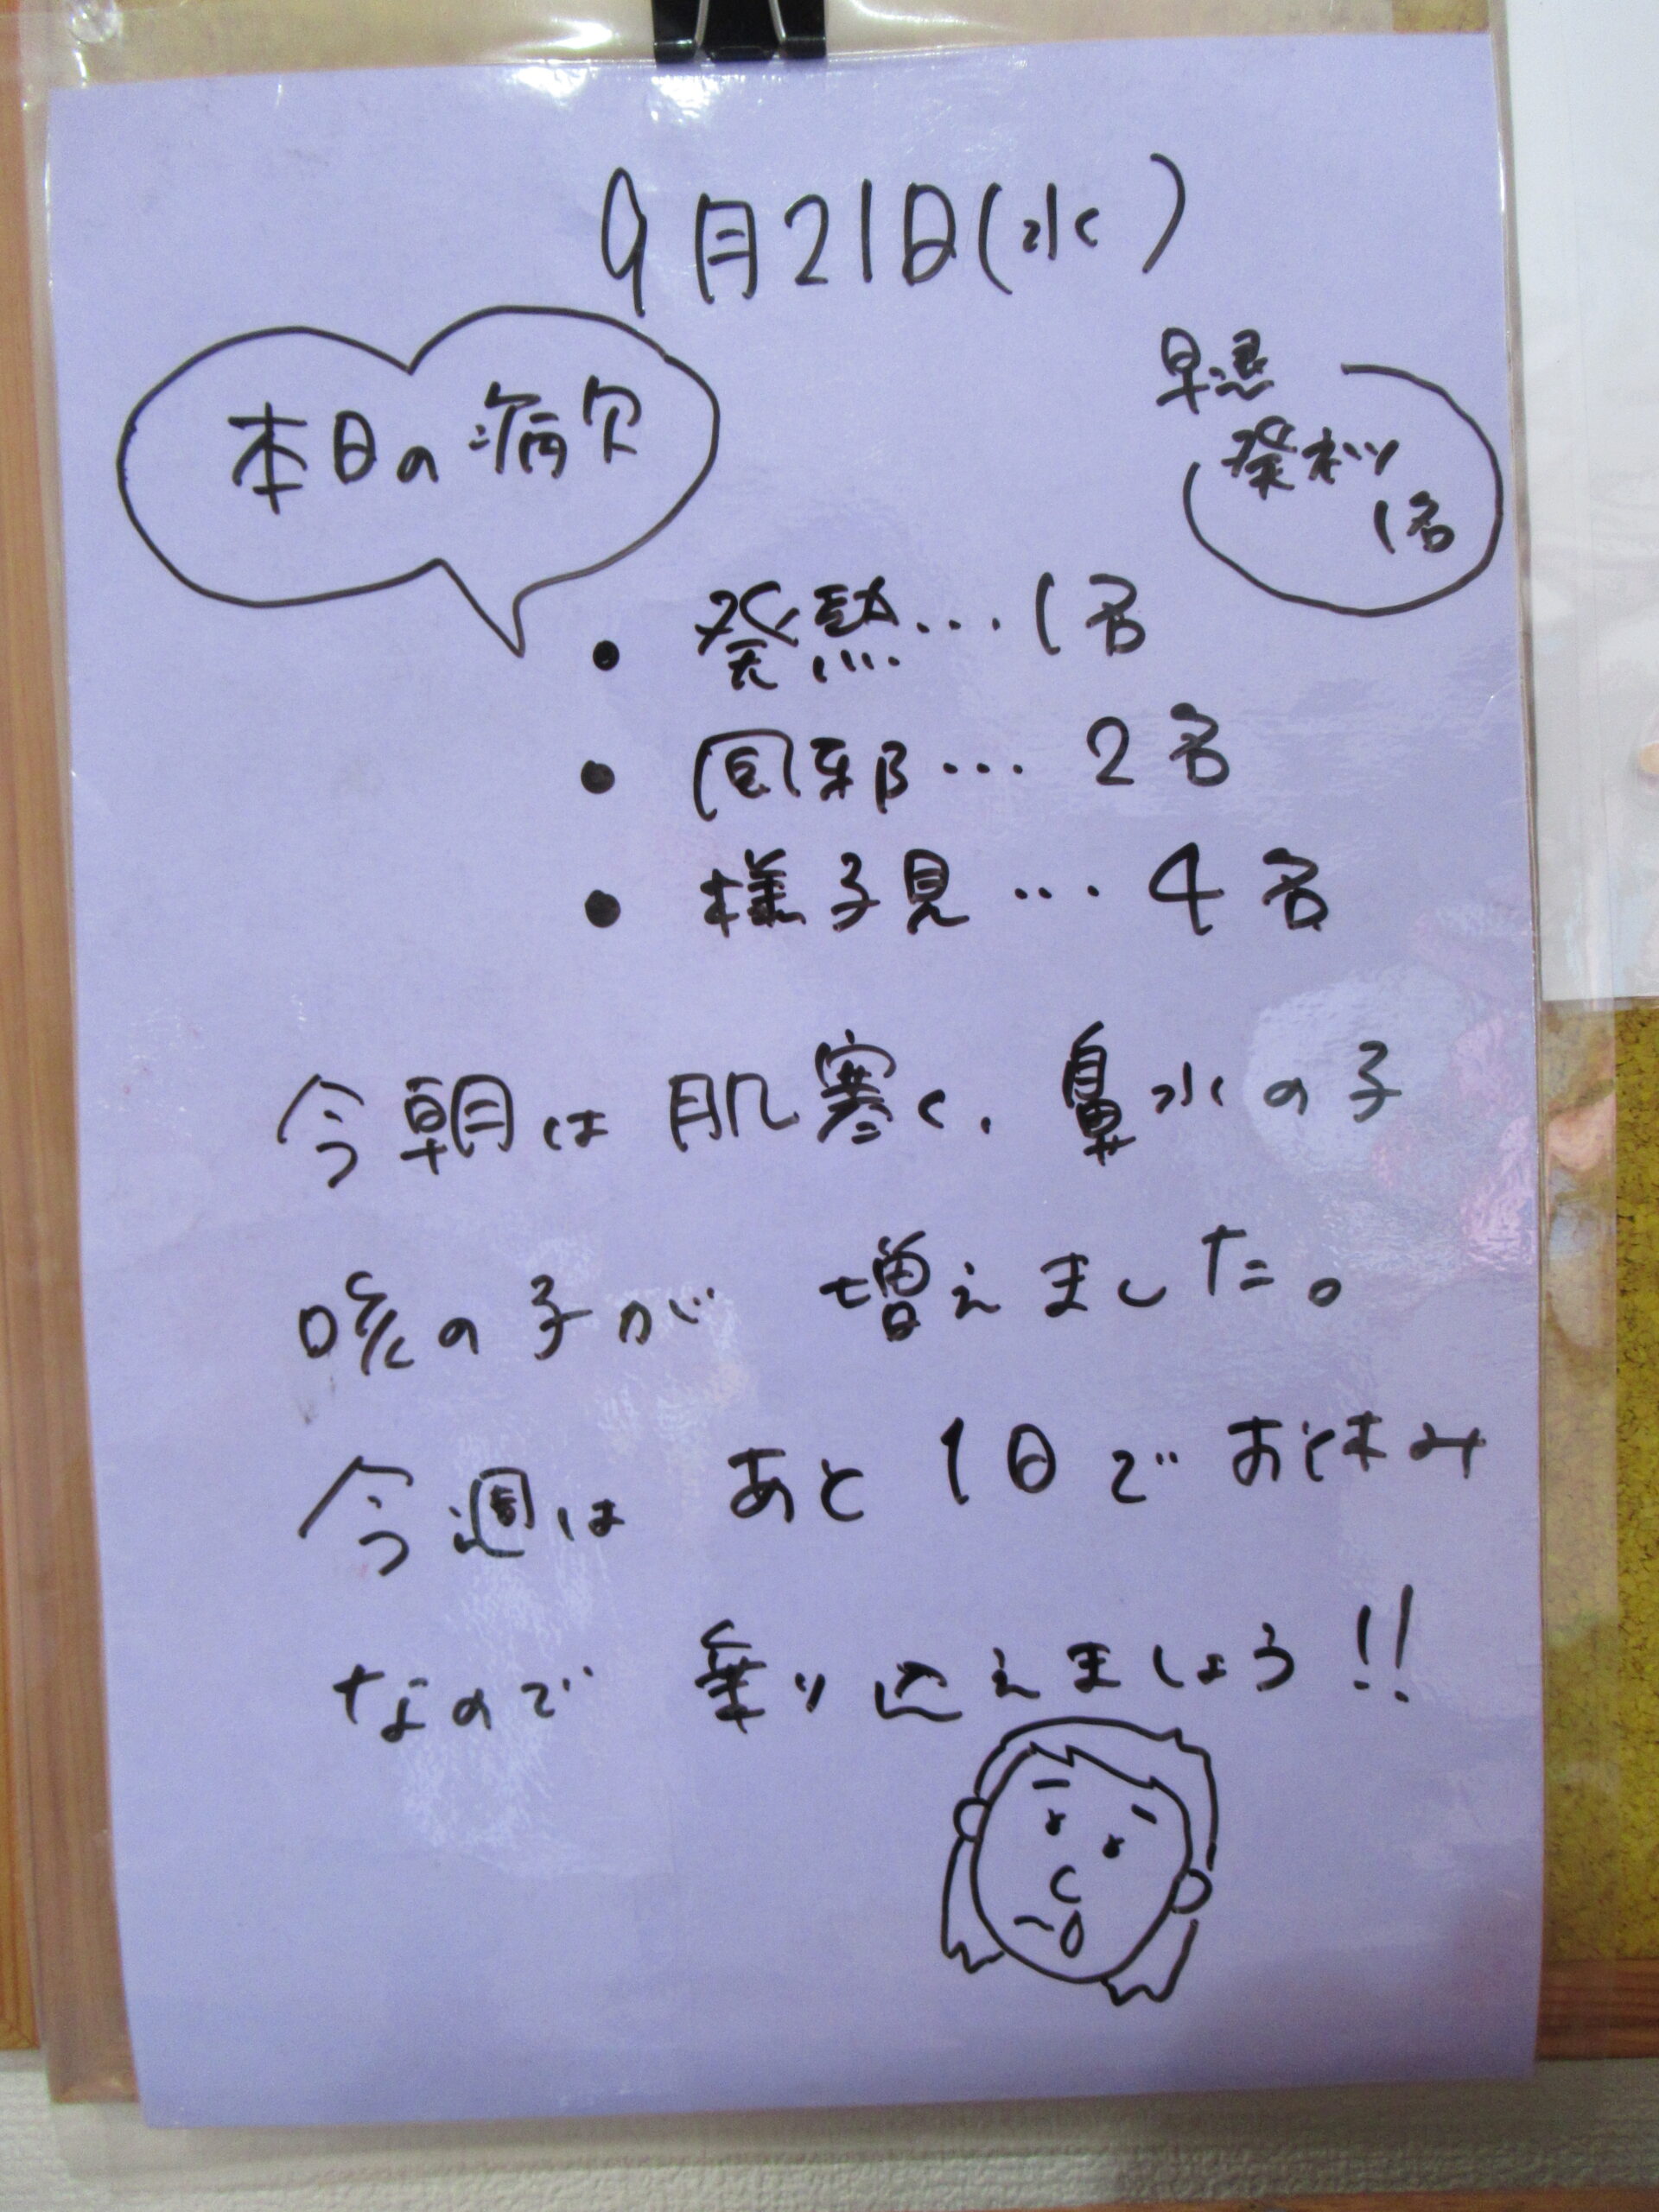 9月21日(水)
本日の病欠
早退
発ネツ
1名
• 発熱…1名
• 風邪…2名
• 様子見…4名
今朝は肌寒く、鼻水の子
咳の子が 増えました。
今週は あと1日でお休み
なので 乗り込えましょう!!